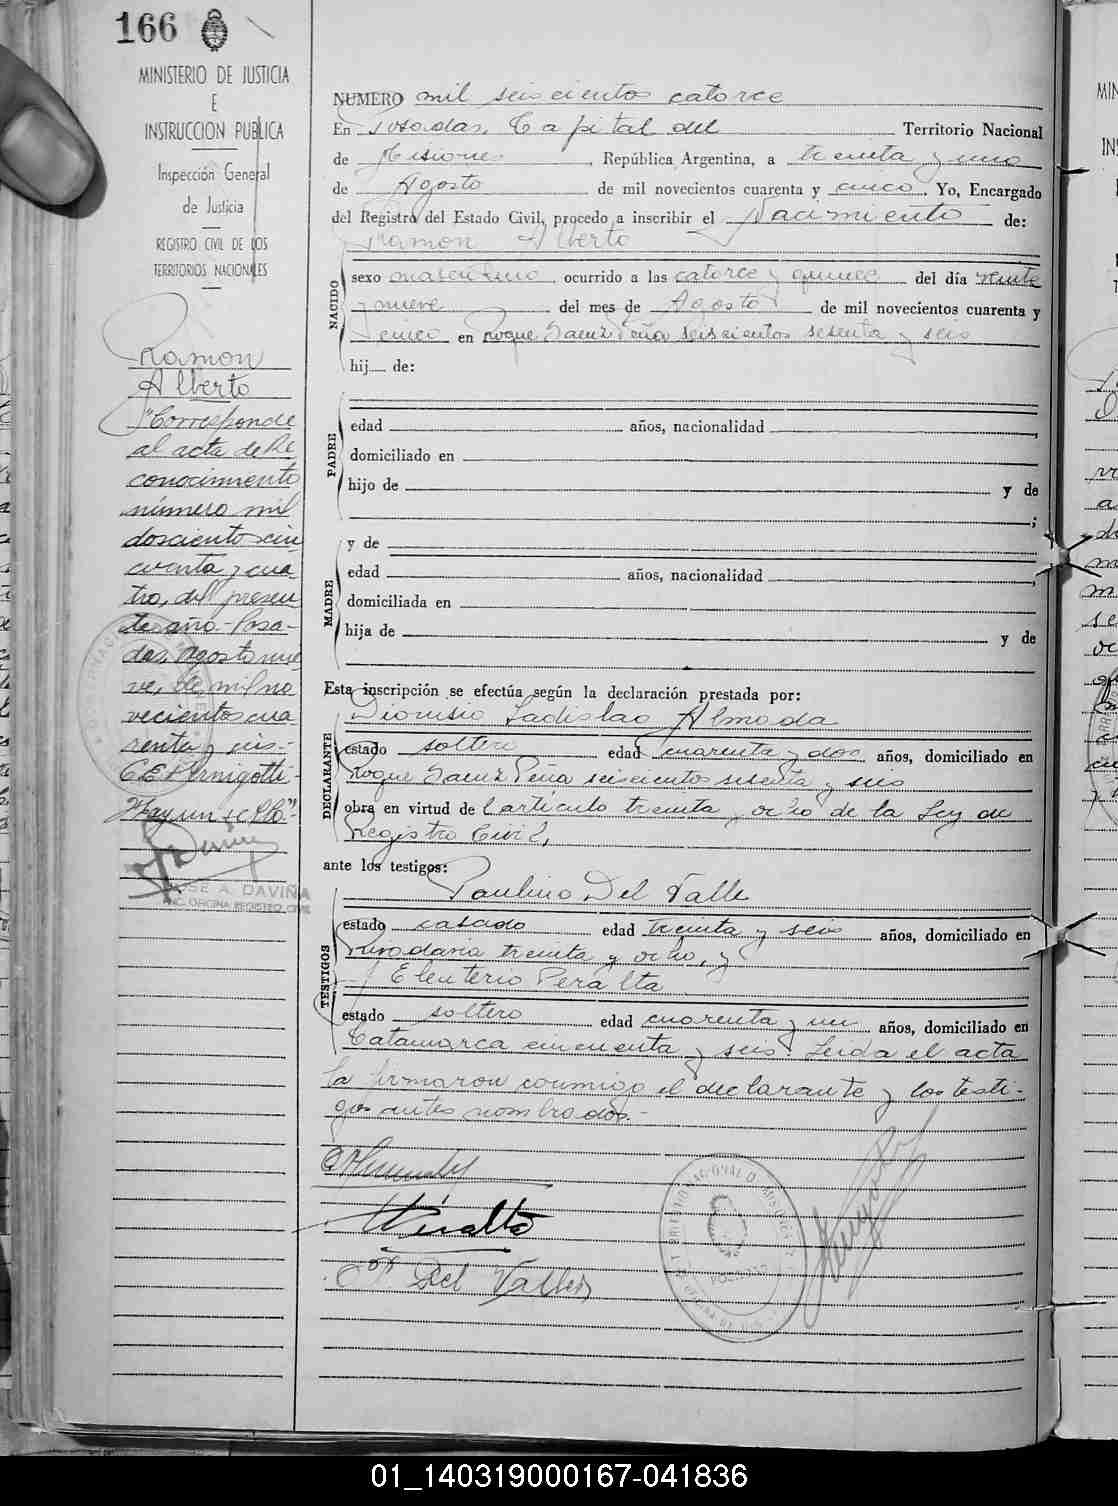 166
MINISTERIO DE JUSTICIA
E
INSTRUCCION PUBLICA
Inspección General
de Justicia
REGISTRO CIVIL DE LOS
TERRITORIOS NACIONALES
Ramon
Alberto
"Corresponde
al acta de Re
conocimiento
número mil
doscientos cin
cuenta y cua
tro, del presen
te año-Posa-
das, Agosto nue
ve, de mil no
vecientos cua
renta y seis.-
C.E. Pernigotti-
JOSE A. DAVIÑA
ENC. OFICINA REGISTRO CIVIL
NUMERO mil seiscientos catorce
En Posadas, Capital del Territorio Nacional
de Misiones, República Argentina, a treinta y uno
de Agosto de mil novecientos cuarenta y cinco. Yo, Encargado
del Registro del Estado Civil, procedo a inscribir el Nacimiento de:
Ramon Alberto
NACIDO
sexo masculino, ocurrido a las catorce y quince del día veinte
y nueve del mes de Agosto de mil novecientos cuarenta y
cinco en Roque Saenz Peña seiscientos sesenta y seis
hij de:
PADRE
edad años, nacionalidad ,
domiciliado en
hijo de y de
;
MADRE
y de
edad años, nacionalidad ,
domiciliada en
hija de y de
Esta inscripción se efectúa según la declaración prestada por:
Dionisio Ladislao Almada
DECLARANTE
estado soltero edad cuarenta y dos años, domiciliado en
Roque Saenz Peña seiscientos sesenta y seis
obra en virtud del artículo treinta y ocho de la Ley de
Registro Civil,
ante los testigos:
Paulino Del Valle
TESTIGOS
estado casado edad treinta y seis años, domiciliado en
Rivadavia treinta y ocho, y
Eleuterio Peralta
estado soltero edad cuarenta y un años, domiciliado en
Catamarca cincuenta y seis. Leida el acta
la firmaron conmigo el declarante y los testi-
gos antes nombrados.-
Peralta
Del Valle
01_140319000167-041836